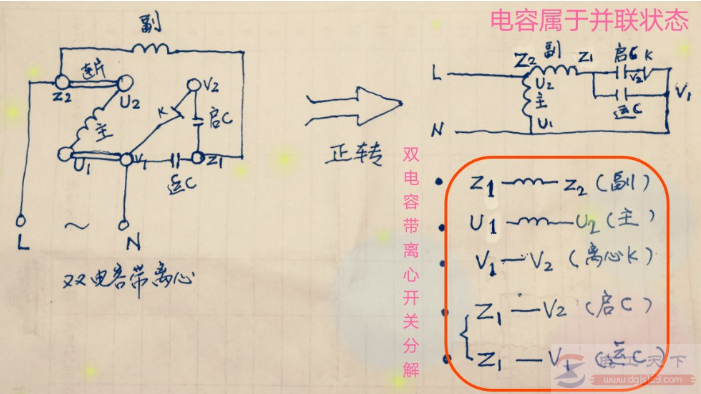 电容属于并联状态
副
Z2 连片 U2 V2
主 K 启C
U1 V1 运C Z1
L ~ N
双电容带离心
正转
副 启C K
L Z2 Z1 V2
U2
主 运C V1
N U1
双电容带离心开关分解
Z1 — Z2 (副)
U1 — U2 (主)
V1 — V2 (离心K)
Z1 — V2 (启C)
Z1 — V1 (运C)
电工天下